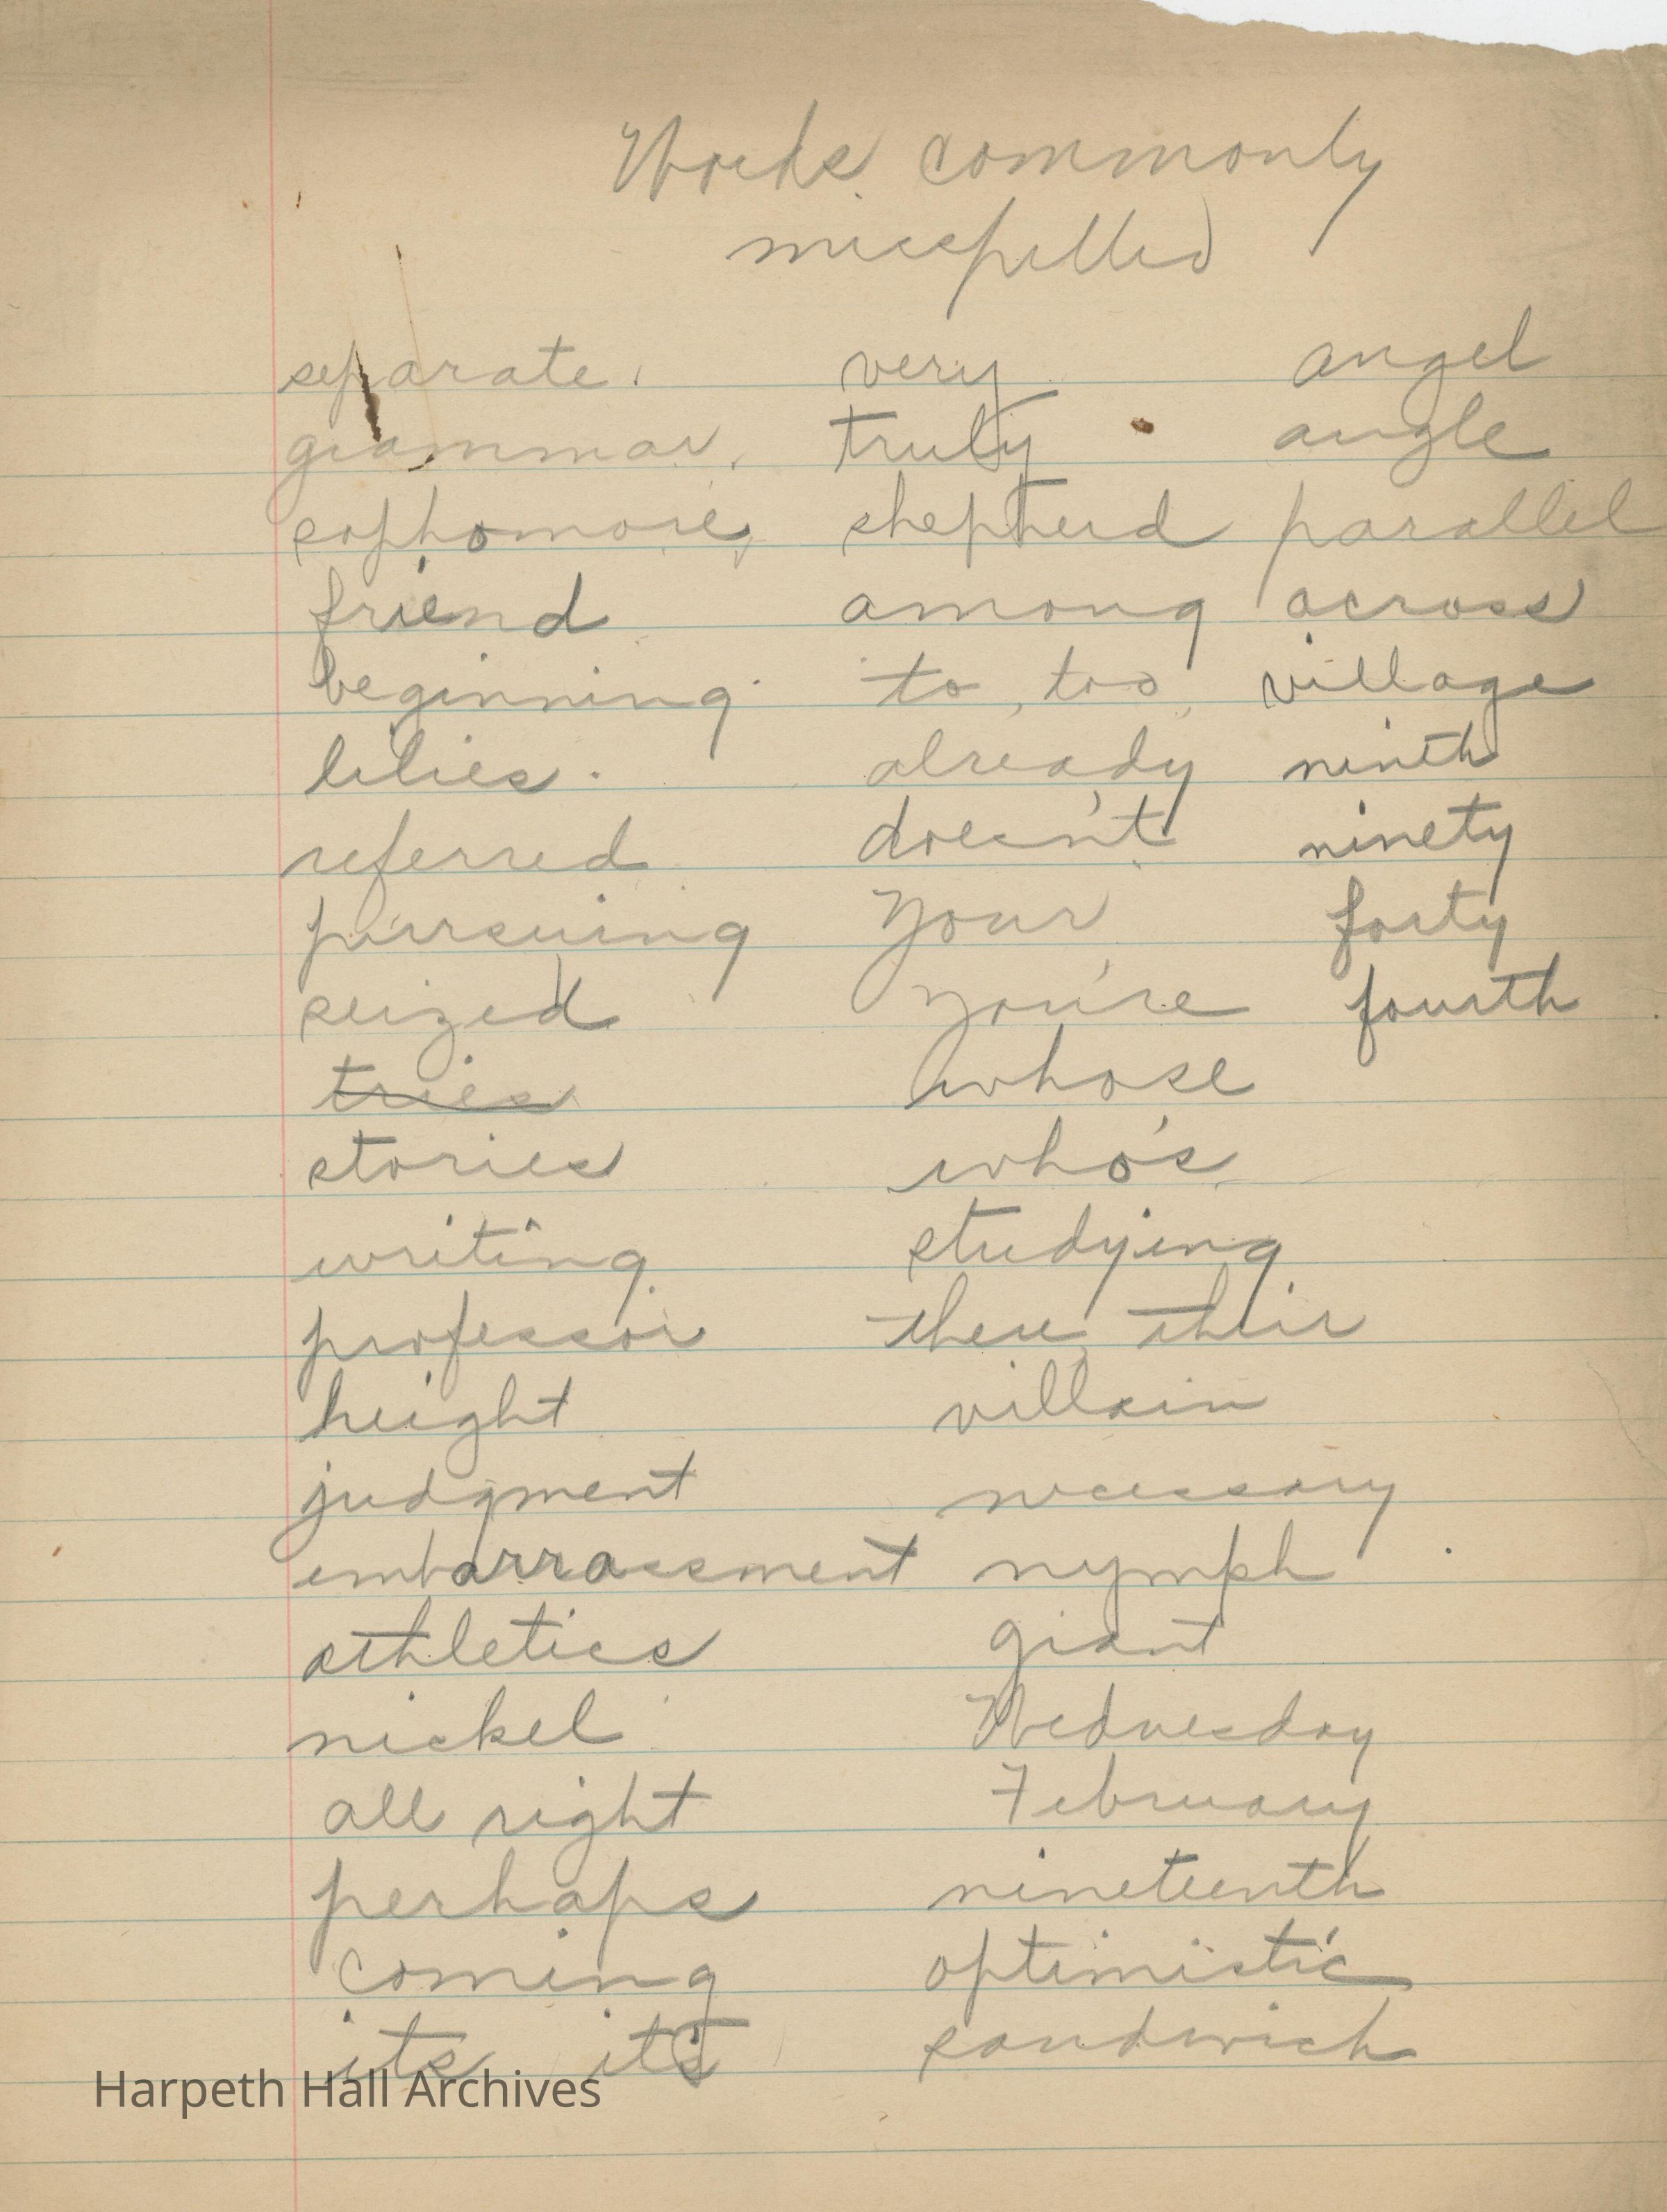 Words commonly
misspelled
separate. very angel
grammar, truly angle
sophomore, shepherd parallel
friend among across
beginning to, too, village
lilies. already ninth
referred doesn't ninety
pursuing Your forty
seized you're fourth
tries whose
stories who's
writing studying
professor there, their
height villain
judgment necessary
embarrassment nymph
athletics giant
nickel Wednesday
all right February
perhaps nineteenth
coming optimistic
its it's sandwich
Harpeth Hall Archives